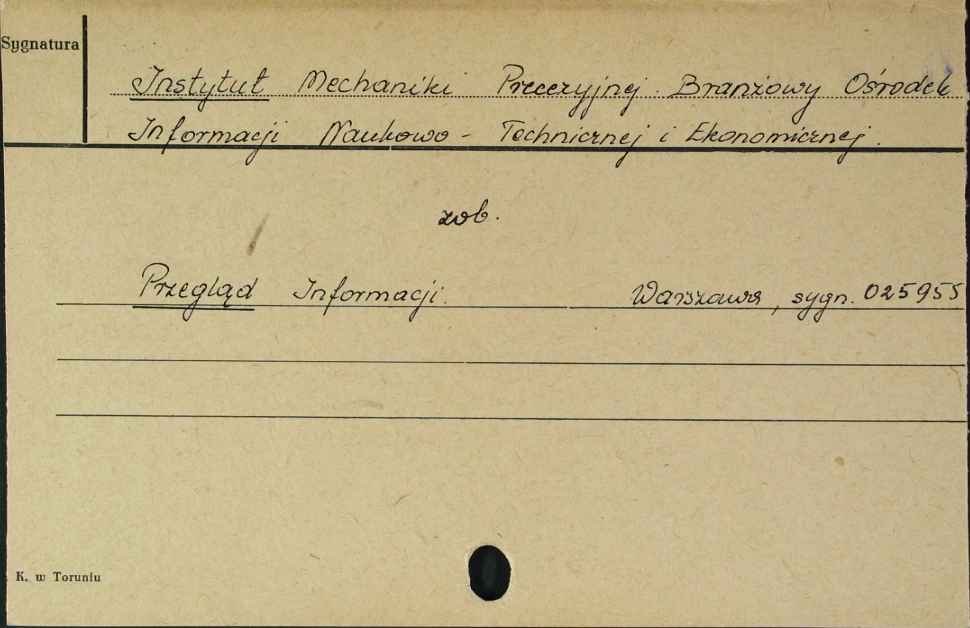 Sygnatura
Instytut Mechaniki Precezyjnej. Branżowy Ośrodek
Informacji Naukowo - Technicznej i Ekonomicznej.
zob.
Przegląd Informacji. Warszawa, sygn. 025955
K. w Toruniu